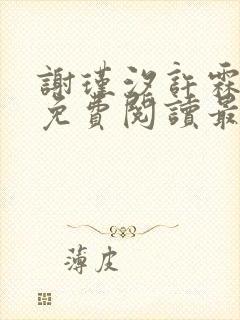 謝瑾汐許霖
免費閱讀最
薄皮